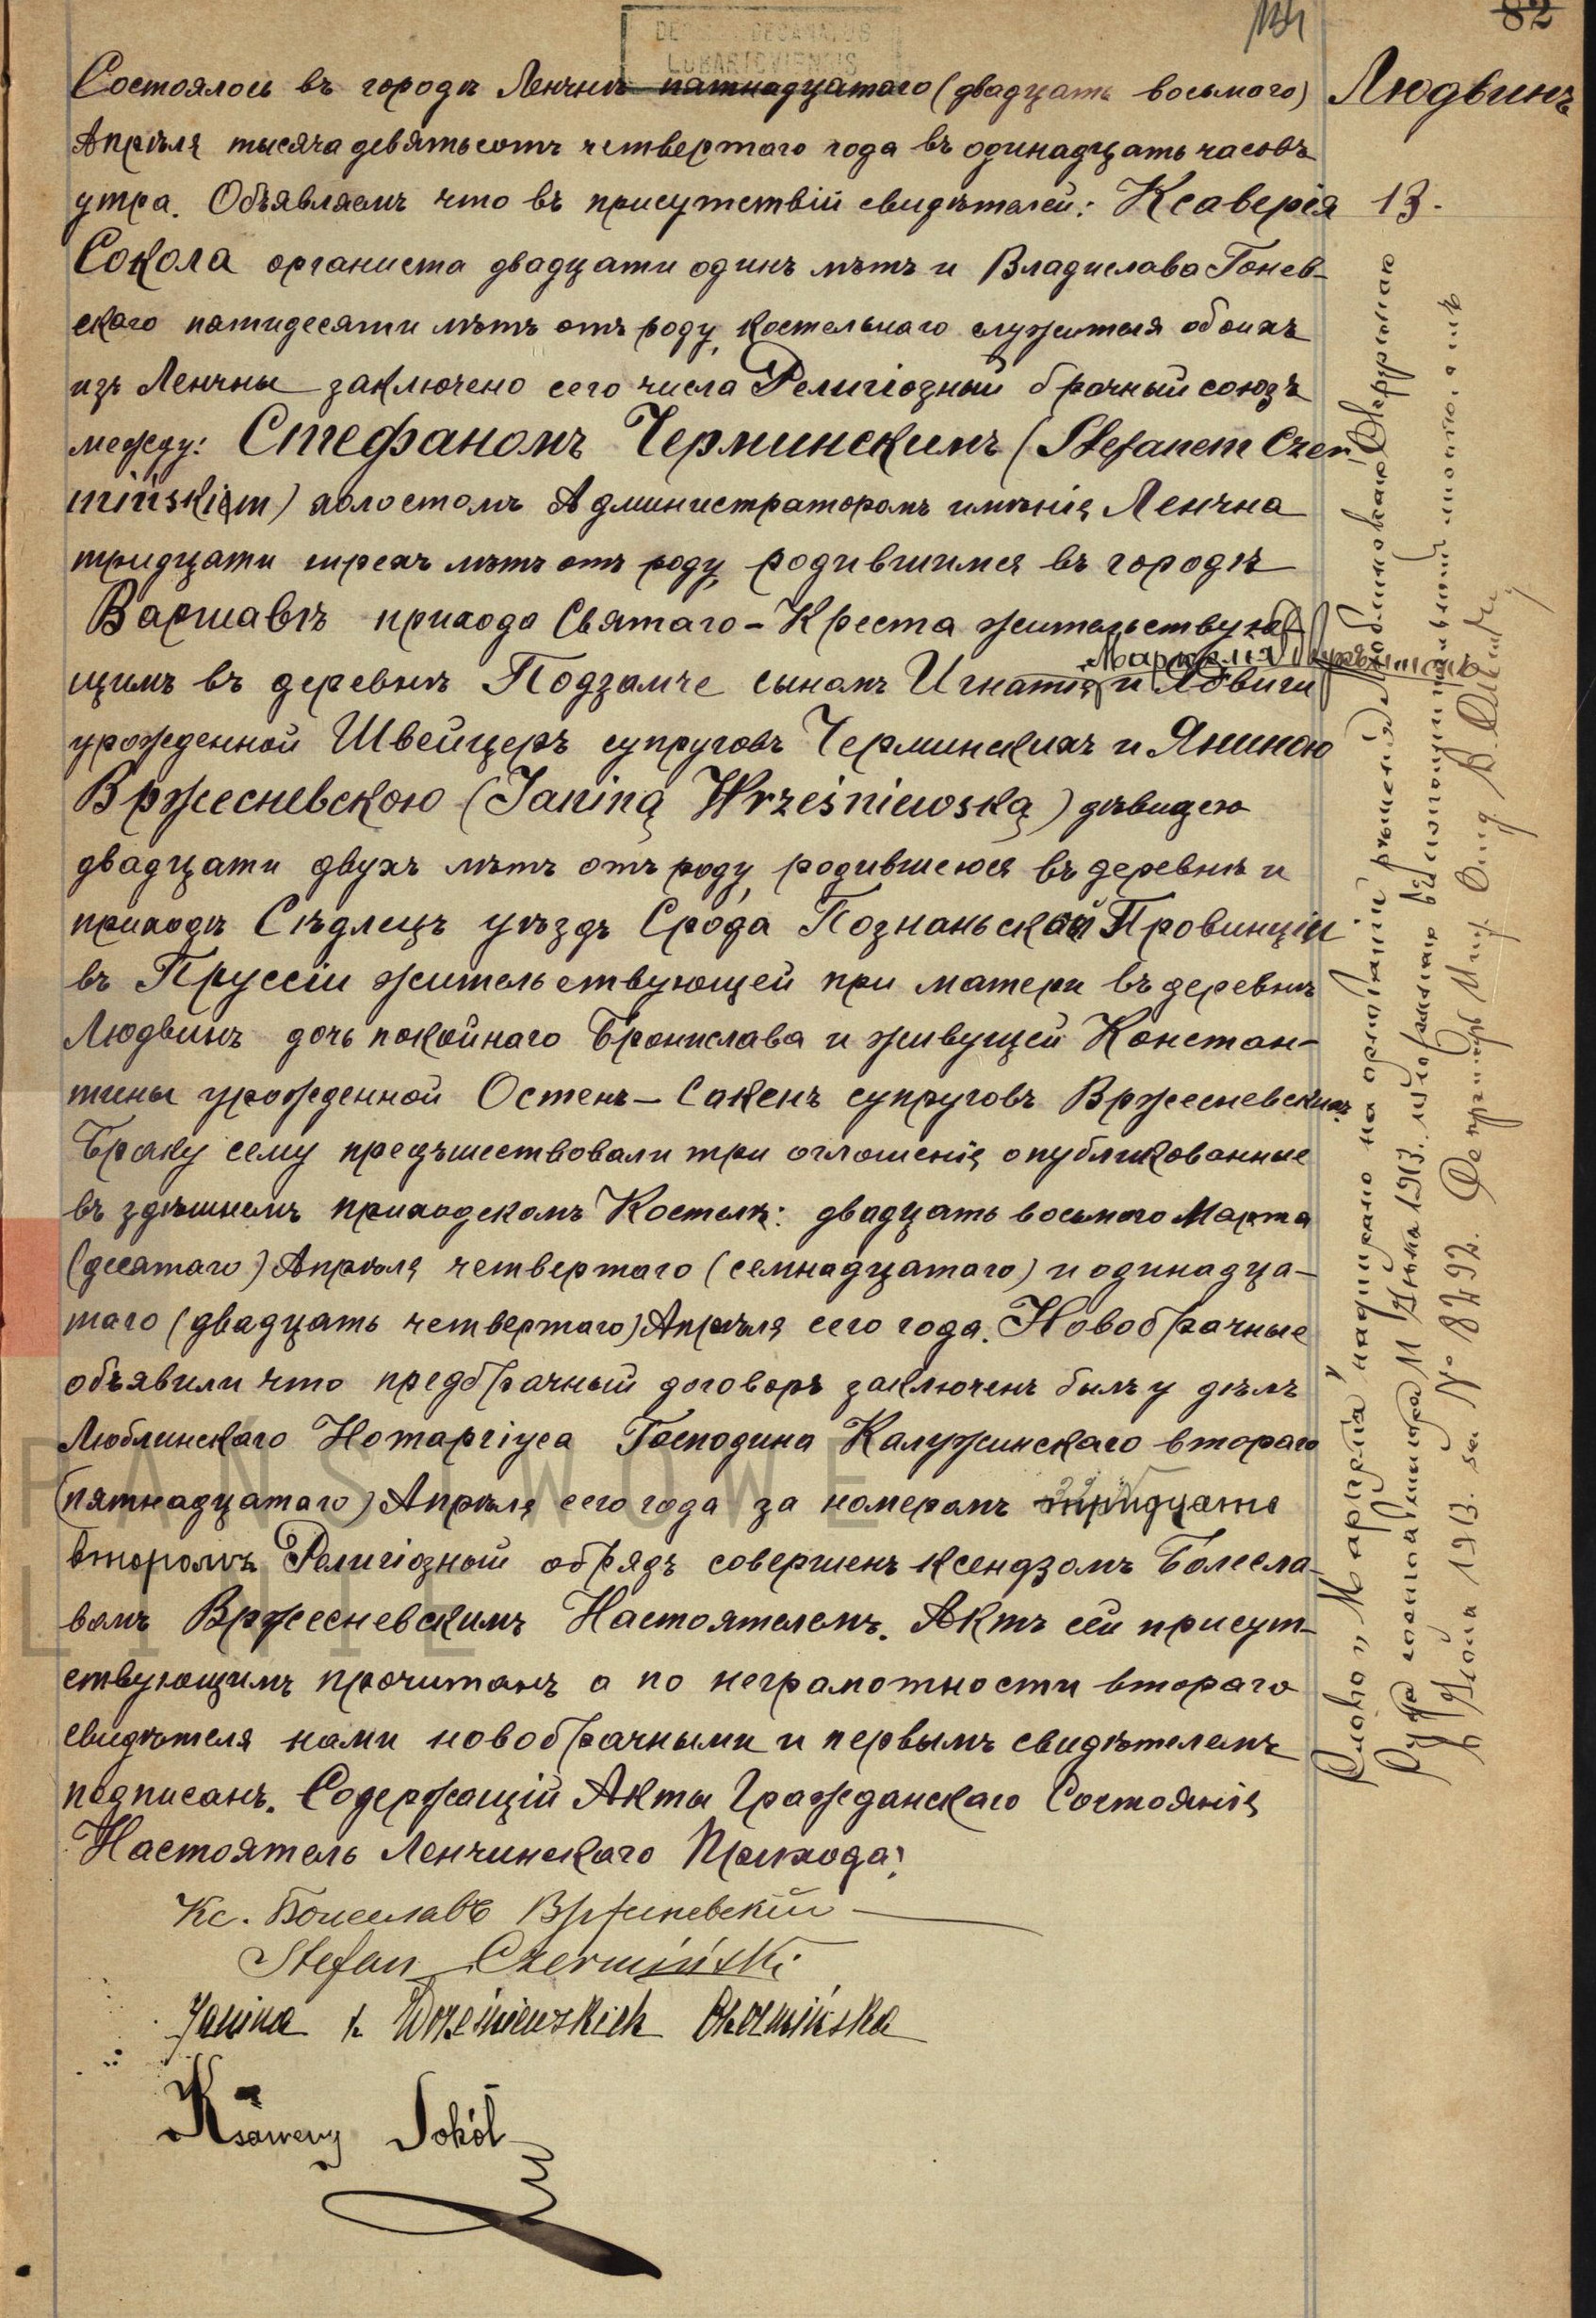 82
134
DECANATUS
LUBARTOVIENSIS
Людвинъ
13.
Состоялось въ городѣ Ленчнѣ пятнадцатаго (двадцать восьмого)
Апрѣля тысяча девятьсотъ четвертаго года въ одинадцать часовъ
утра. Объявляемъ что въ присутствіи свидѣтелей: Ксаверія
Сокола органиста двадцати одинъ лѣтъ и Владислава Гонев-
скаго пятидесяти лѣтъ отъ роду, костельнаго служителя обоихъ
изъ Ленчны заключено сего числа Религіозный брачный союзъ
между: Стефаномъ Черминскимъ (Stefanem Czer
mińskim) холостомъ Администраторомъ имѣнія Ленчна
тридцати трехъ лѣтъ отъ роду, родившимся въ городѣ
Варшавѣ прихода Святаго-Креста жительствую-
щимъ въ деревнѣ Подзамче сыномъ Игнатія и Ядвиги
урожденной Швейцеръ супруговъ Черминскихъ и Яниною
Вржесневскою (Janiną Wrześniewską) дѣвицею
двадцати двухъ лѣтъ отъ роду, родившеюся въ деревнѣ и
приходѣ Сѣдлецъ уѣздъ Сро́да Познаньской Провинціи
въ Пруссіи жительствующей при матери въ деревнѣ
Людвинъ дочь покойнаго Бронислава и живущей Констан-
тины урожденной Остенъ-Сакенъ супруговъ Вржесневскихъ.
Браку сему предъшествовали три оглошенія опубликованные
въ здѣшнемъ приходскомъ Костелѣ: двадцать восьмого Марта
(десятаго) Апрѣля четвертаго (семнадцатаго) и одинадца-
таго (двадцать четвертаго) Апрѣля сего года. Новобрачные
объявили что предбрачный договоръ заключенъ былъ у дѣлъ
Люблинскаго Нотаріуса Господина Калужинскаго второго
(пятнадцатаго) Апрѣля сего года за номеромъ тридцать
второмъ Религіозный обрядъ совершенъ ксендзомъ Болесла-
вомъ Вржесневскимъ Настоятелемъ. Актъ сей присут-
ствующимъ прочитанъ а по неграмотности второго
свидѣтеля нами новобрачными и первымъ свидѣтелемъ
подписанъ. Содержащій Акты Гражданскаго Состоянія
Настоятель Ленчинскаго Прихода:
Кс. Болеславъ Вржесневскій
Stefan Czermiński
Janina z Wrześniewskich Czermińska
Ksawery Sokół
Слово „Маркеля" надписано на основаніи рѣшенія Люблинскаго Окружнаго
Суда 1913.
1913. за № 8292.